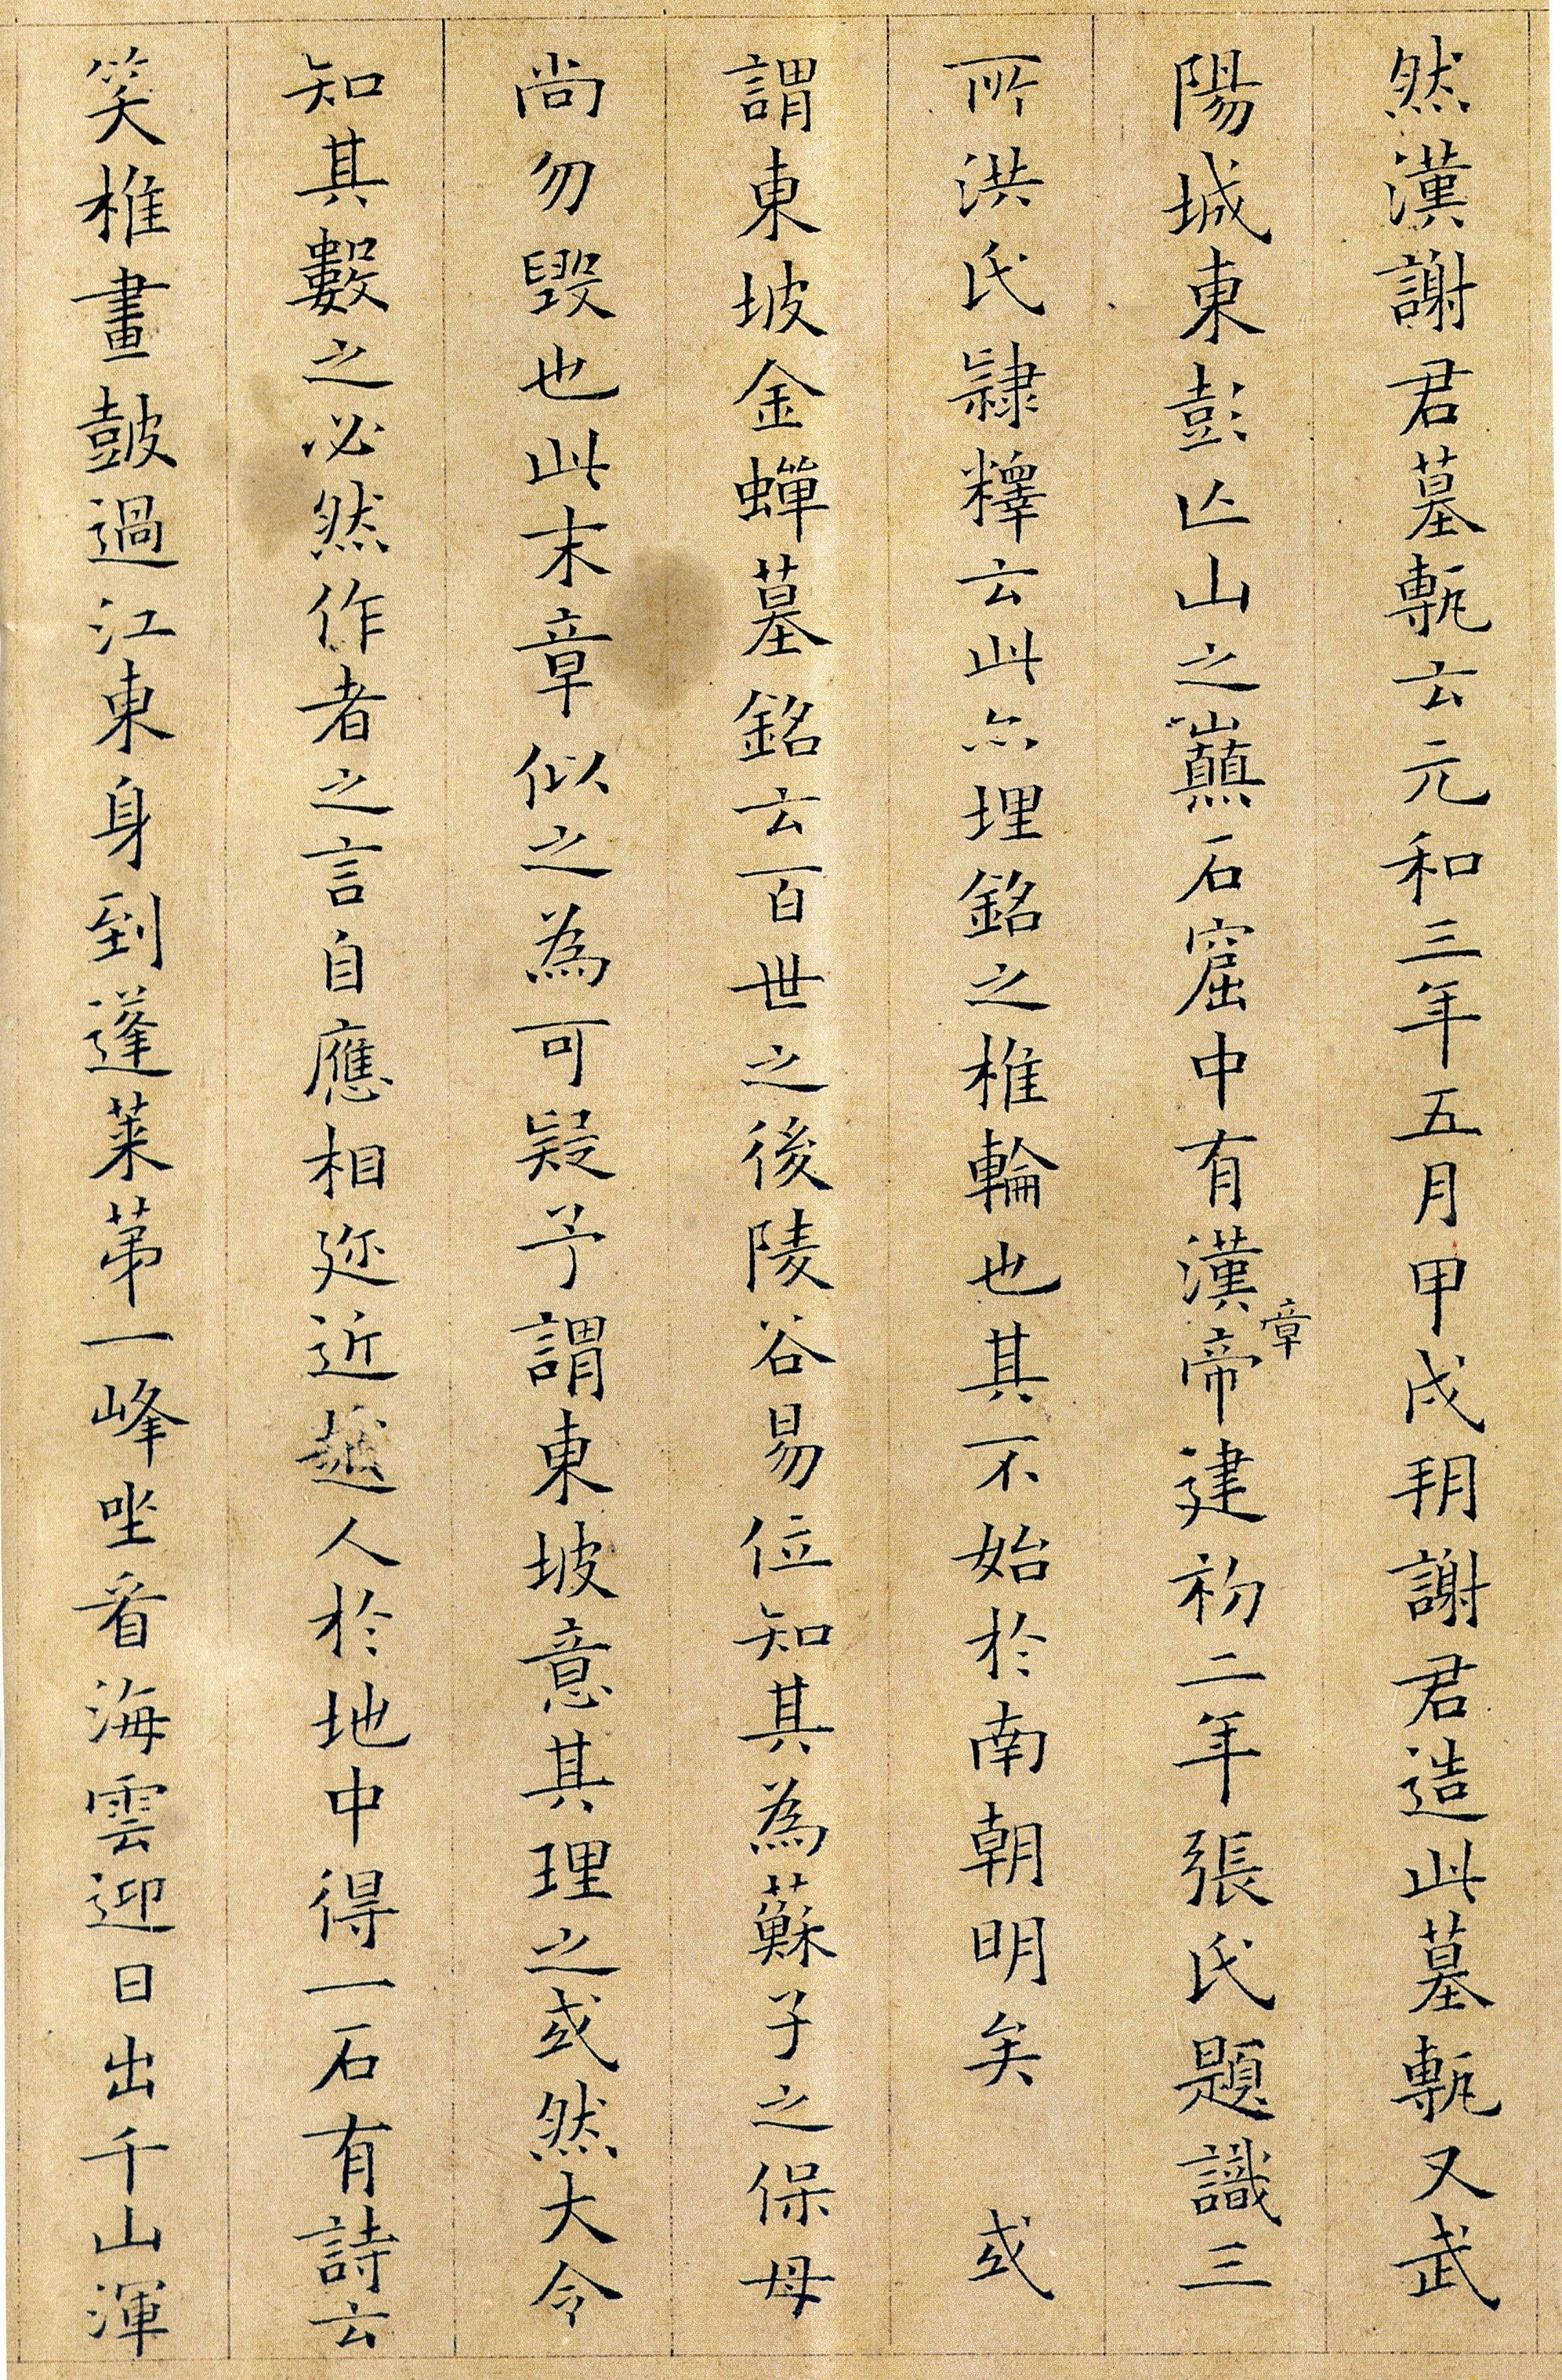 然漢謝君墓甎云元和三年五月甲戌朔謝君造此墓甎又武
陽城東彭亾山之巔石窟中有漢章帝建初二年張氏題識三
所洪氏隸釋云此亦埋銘之椎輪也其不始於南朝明矣 或
謂東坡金蟬墓銘云百世之後陵谷易位知其為蘇子之保母
尚勿毀也此末章似之為可疑予謂東坡意其理之或然大令
知其數之必然作者之言自應相近近越人於地中得一石有詩云
笑椎畫鼓過江東身到蓬萊第一峰坐看海雲迎日出千山渾